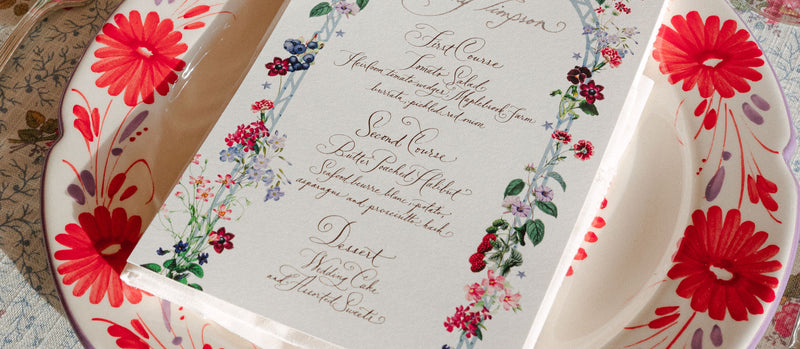 Simpson
First Course
Tomato Salad
Heirloom tomato wedges, Maplebrook Farm
burrata, pickled red onion
Second Course
Butter Poached Halibut
Seafood beurre blanc, potato,
asparagus and prosciutto hash
Dessert
Wedding Cake
and Assorted Sweets